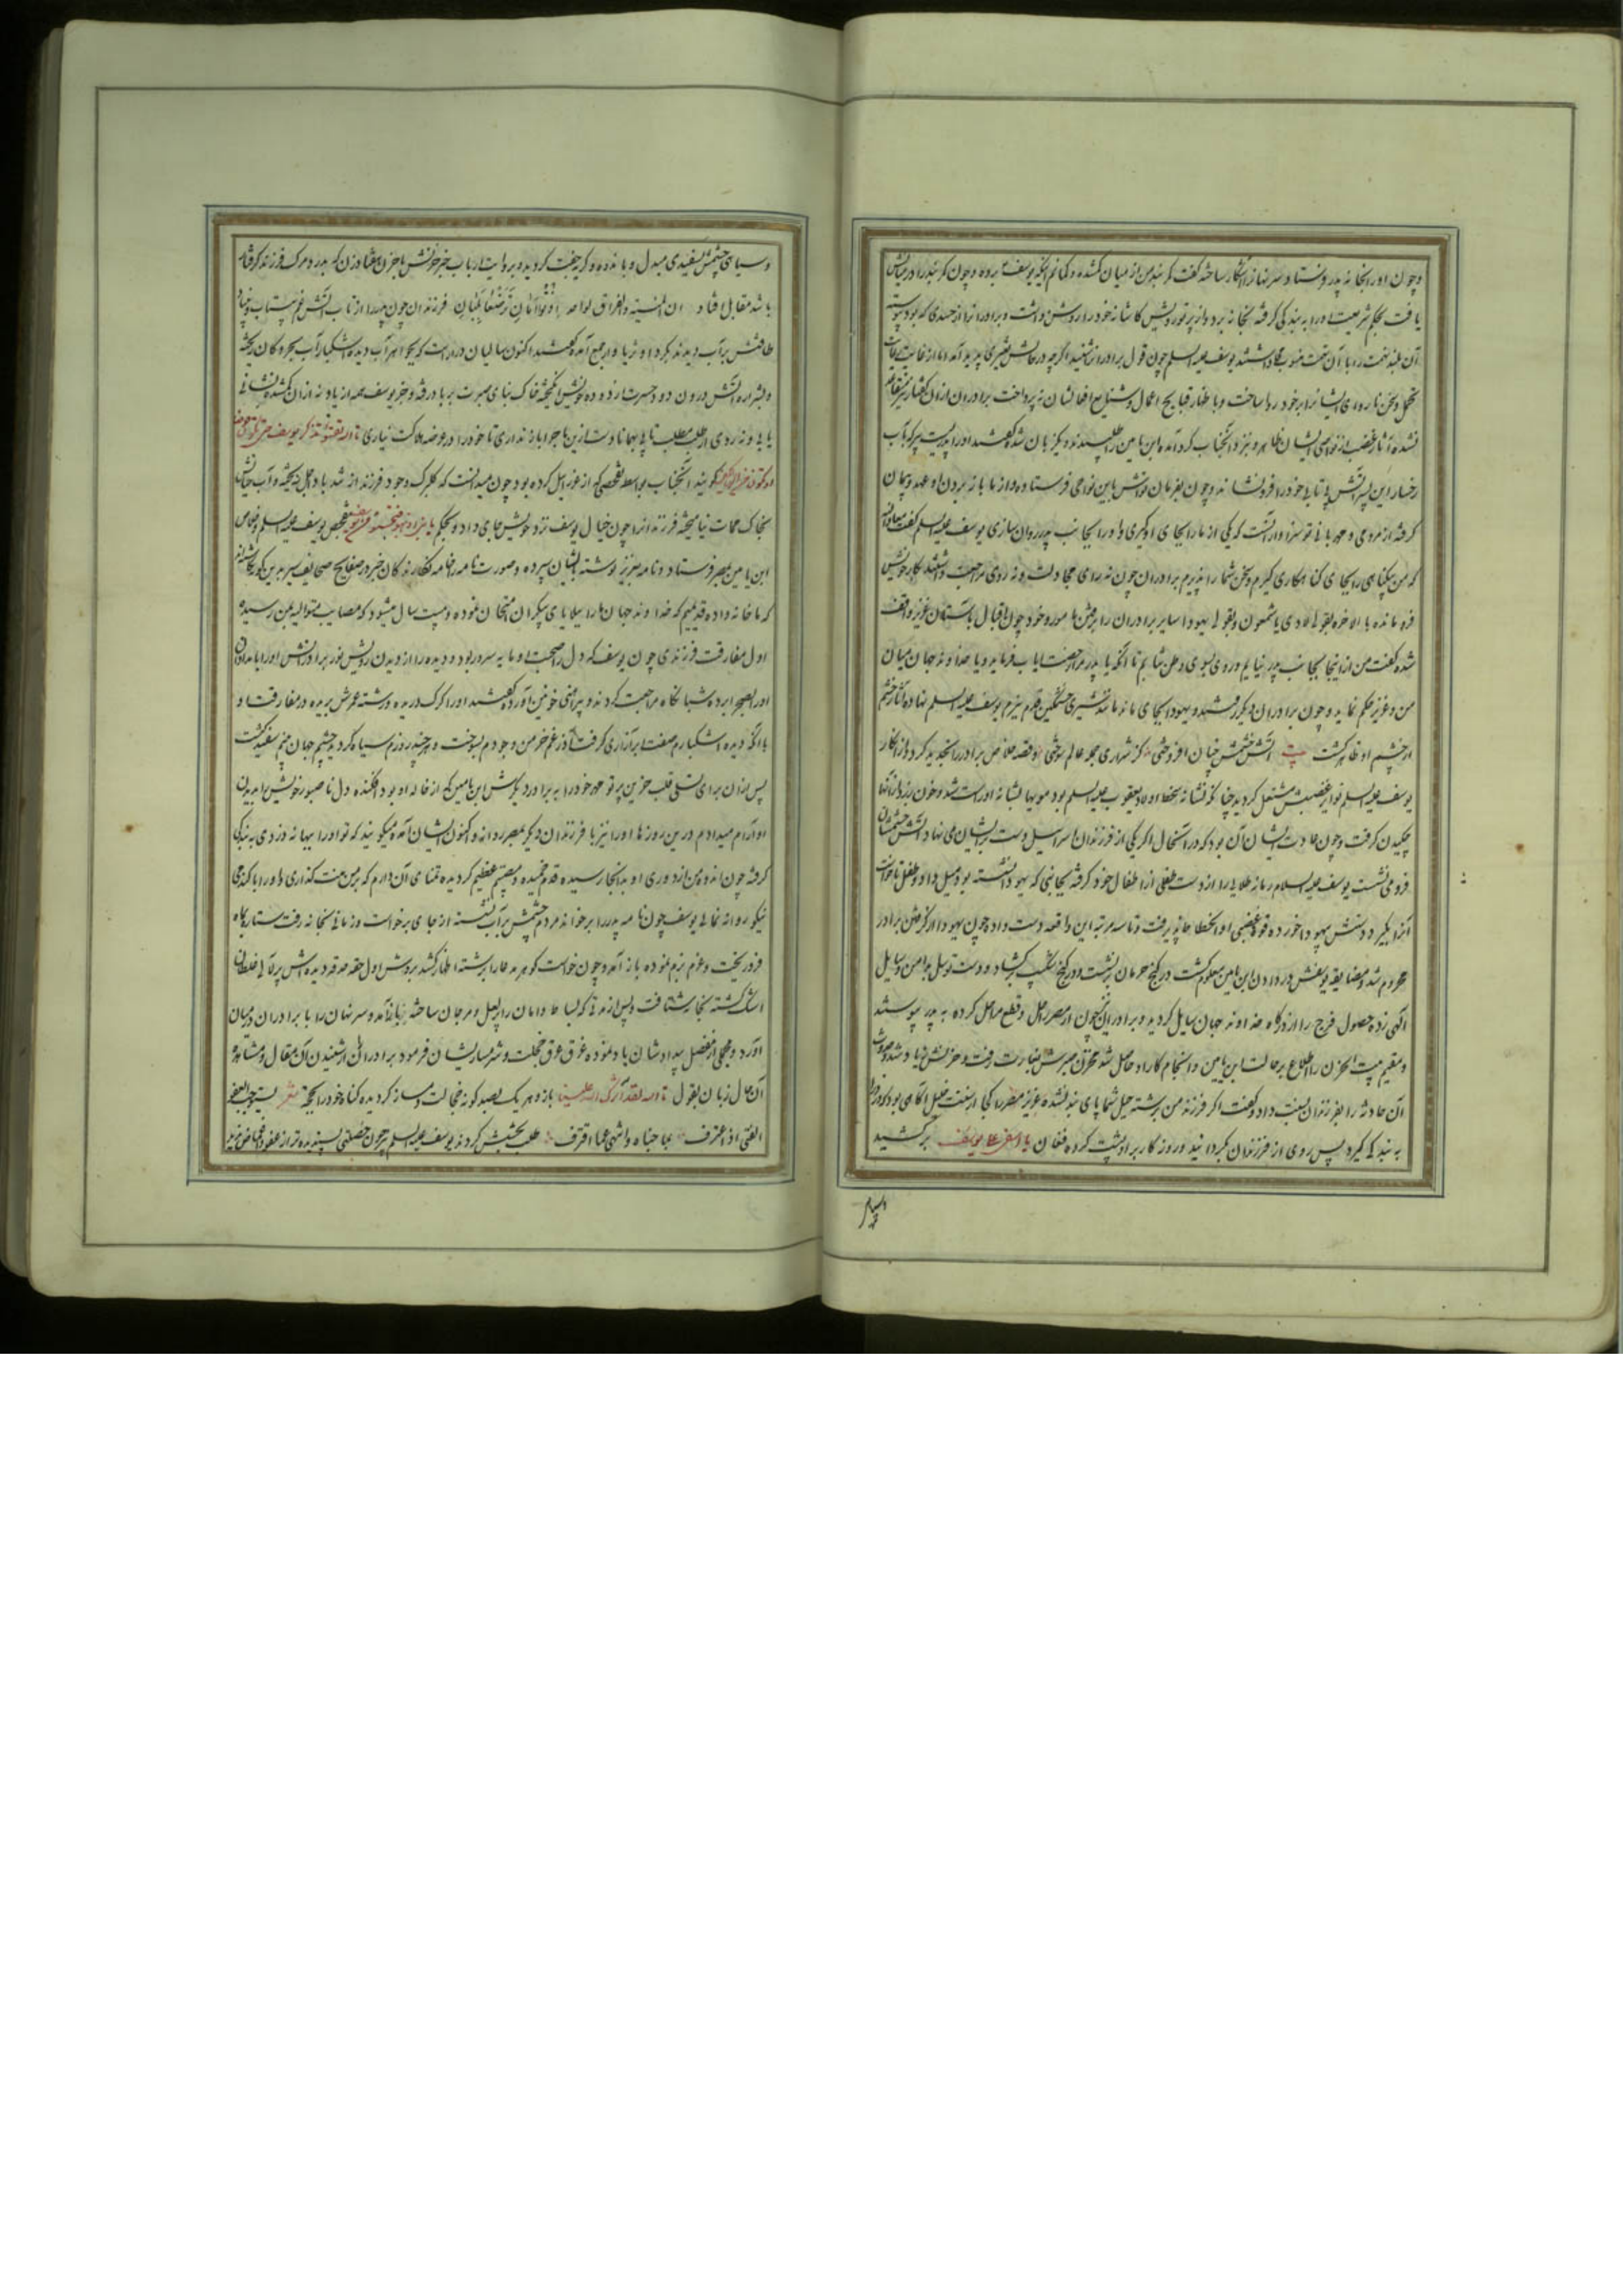 و چون او را بخانه پدر فرستاد و سر نهانرا آشکار ساخته گفت کمربند من از میان گشده و گمانم آنکه یوسف برده و چون کمربند را در میانش
یافت بحکم شریعت او را به بندگی گرفته بخانه برد و از پرتو رویش کاشانه خود را روشن داشت و برادرانرا از حسدی که بود پیوسته
آن بلند بخت را با آن تهمت منسوب میداشتند یوسف علیه السلم چون قول برادران شنید اگرچه در حالش تغییری پدید آمد اما از غایت
تحمل سخن ناروای ایشانرا بر خود روا ساخت و باظهار قبایح اعمال و شنایع افعالشان نپرداخت برادران از آن گفتار
نشده آثار غضب از نواصی ایشان ظاهر و بنزد آنجناب گرد آمده ابن یامین را طلبیدند و یکزبان شده گفتند او را پدریست پیر که بآب
رخسار این پسر آتش بی تابی خود را فرو نشاند و چون بفرمان تو اش باین نواحی فرستاده و از ما باز بردن او عهد و پیمان
گرفته از مردمی و مهربانی تو سزاوار آنست که یکی از ما را بجای او گیری و او را بجانب پدر روان سازی یوسف علیه السلم گفت معاذ الله
که من بیگناهی را بجای گناهکاری گیرم و سخن شما را پذیرم برادران چون نه رای مجادلت و نه روی مراجعت داشتند بکار خویش
فرو مانده بالاخره بقولی لاوی یا شمعون و بقولی یهودا سایر برادران را
شده گفت من از اینجا بجانب پدر نیایم و روی بسوی وطن ننمایم تا آنکه یا پدر مرا رخصت ایاب فرماید و یا خداوند جهان میان
من و عزیز حکم نماید و چون برادران دیگر رفتند و یهودا بجای ماند مانند شیری خشمگین قدم ببزم یوسف علیه السلم نهاده آثار خشم
از چشم او ظاهر گشت بیت آتش خشمش چنان افروختی کز شراری جمله عالم سوختی و قصه خلاص برادر را تجدید کرد و از انکار
یوسف علیه السلم نوایر غضبش مشتعل گردید چنانکه نشانه سخط اولاد یعقوب علیه السلم بود مویها بشانه او راست شد و خون از آنها
چکیدن گرفت و چون عادت ایشان آن بود که در آنحال اگر یکی از فرزندان اسرائیل دست بر ایشان می نهاد آتش خشمشان
فرو می نشست یوسف علیه السلام رمانه طلا را از دست طفلی از اطفال خود گرفته بجانبی که یهودا نشسته بود میل داد و طفل تا خواست
آنرا بگیرد دستش بیهودا خورده قوه غضبی او انحطاط پذیرفت و تا سه مرتبه این واقعه دست داد چون یهودا از گرفتن برادر
محروم شد و مضایقه یوسفش در دادن ابن یامین معلوم گشت در کنج حرمان بنشست و در گنج شکیب بگشاد و دست توسل بدامن وسایل
الهی زده حصول فرج را از درگاه خداوند جهان سایل گردید و برادران چون از مصر راحل و قطع مراحل کرده به پدر پیوستند
و مقیم بیت الحزن را اطلاع بر حالت ابن یامین و انجام کار او حاصل شد مخزن صبرش بغارت رفت و حزنش زیاد شد و صورت
آن حادثه را بفرزندان نسبت داد و گفت اگر فرزند من برشته حیل شما پای بند نشده عزیز مصر را کجا از سنت خلیل آگاهی بود که دزد را
به بندگی گیرد پس روی از فرزندان بگردانید و روزگار بر او پشت کرده فغان یا اسفی علی یوسف برکشید
و سیاهی چشمش بسفیدی مبدل و با اندوه و گریه جفت گردیده بروایت ارباب خبر حزنش با حزن هفتاد زن که بدرد مرگ فرزند گرفتار
باشد مقابل افتاد
طاقتش بر آب دیدند بگرد او ثریا وار جمع آمده گفتند اکنون سالیان درازست که بجواهر آب دیده اشکبار آب بحر و کان ریخته
و بشراره آتش درون دود حسرت از دوده خویش انگیخته خاک بنای صبرت برباد رفته و جز یوسف همه از یاد نه از آن گمشده نشانی
یابی و نه روی از طلب مطلب تابی همانا دست ازین ماجرا باز نداری تا خود را در عرضه هلاکت نیاری تالله تفتؤا تذکر یوسف حتی تکون حرضا
او تکون من الهالکین گویند آنجناب بواسطه تفحصی که از عزرائیل کرده بود چون میدانست که گلبرگ وجود فرزند از تندباد اجل نریخته و آب حیاتش
بخاک ممات نیامیخته فرزندانرا چون خیال یوسف نزد خویش جای داد و بحکم یا بنی اذهبوا فتحسسوا من یوسف بتفحص یوسف علیه السلم و خلاص
ابن یامین بمصر فرستاد و نامه بعزیز نوشته بایشان سپرده و صورت نامه را خامه نگارندگان خبر در صفایح صحایف سیر برین گونه نگاشته اند
که ما خانواده قدیمیم که خداوند جهان ما را ببلایای بیکران امتحان نموده و بیست سال میشود که مصایب متوالیه بمن رسیده
اول مفارقت فرزندی چون یوسف که دل را صحبت او مایه سرور بود و دیده را از دیدن رویش نور برادرانش او را بامدادان
بصحرا برده شبانگاه مراجعت کردند و پیراهنی خونین آورده گفتند او را گرگ دریده و رشته عمرش بریده در مفارقت او
با آنکه دیده اشکبارم صفت ابر آزاری گرفت آذر غم خرمن وجودم بسوخت و هرچند روزم سیاه گردید چشم جهان بینم سفید گشت
پس از آن برای تسلی قلب حزین پرتو مهر خود را به برادر دیگرش ابن یامین که از خاله او بود افکنده دل ناصبور خویش را بدیدن
او آرام میدادم درین روزها او را نیز با فرزندان دیگر بمصر روانه و اکنون ایشان آمده میگویند که تو او را ببهانه دزدی به بندگی
گرفته چون اندوه من از دوری او بدانجا رسیده قدم خمیده و مصیبتم عظیم گردیده تمنای آن دارم که بر من منت گذاری و او را با گندمی
نیکو روانه نمائی یوسف چون نامه پدر را برخواند مردم چشمش بر آب نشسته از جای برخواست و زمانی بخانه رفت ستاره گاه
فرو ریخت و عزم بزم نموده باز آمد و چون خواست گوهر مدعا را برشته اظهار کشد
اشک گشته بخانه شتافت و پس از مدتی که بساط دامان را پر لعل و مرجان ساخته باز آمد و سر نهان را با برادران در میان
آورد و مجملی از مفصل بیداد شان یاد نموده غرق عرق خجلت و شرمساریشان فرمود برادران از شنیدن آن مقال و مشاهده
آن حال زبان بقول تالله لقد آثرک الله علینا باز و هر یک بصد گونه خجالت دمساز گردیده گناه خود را حجة شعر یستوجب العفو
الفتی اذا اعترف بما جناه و انتهی عما اقترف طلب بخشش کردند یوسف علیه السلم چون خصلتی پسندیده تر از عفو و اغماض ندید